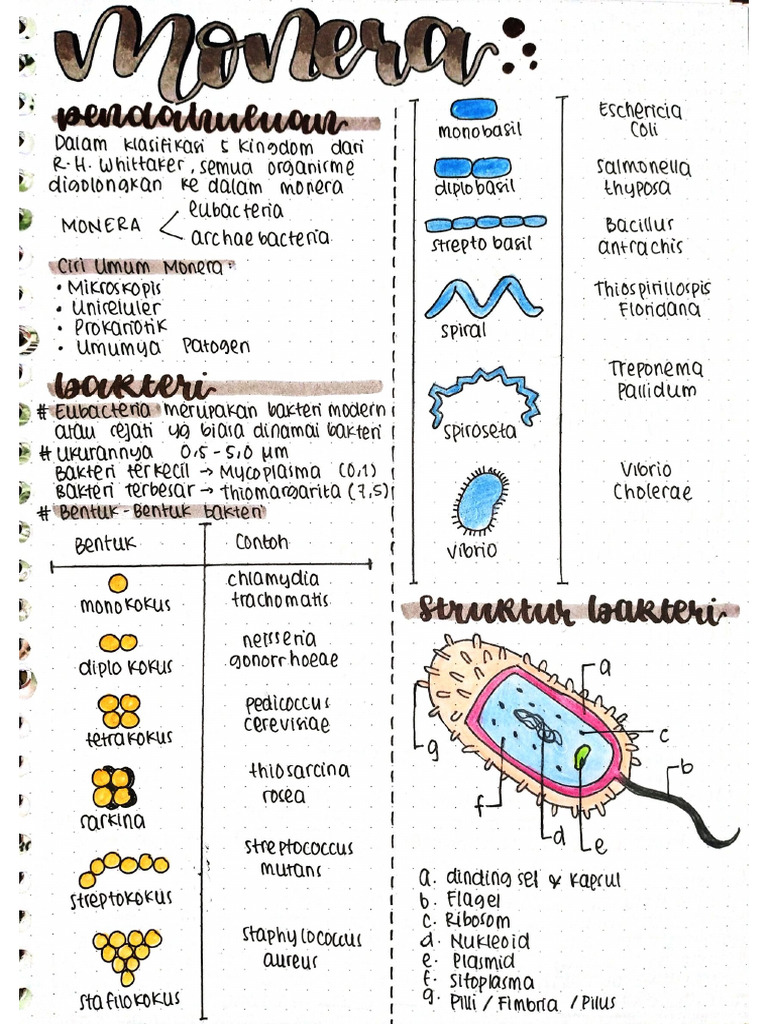 Monera
pendahuluan
Dalam klasifikasi 5 kingdom dari
R.H. Whittaker, semua organisme
digolongkan ke dalam monera
MONERA
eubacteria
archaebacteria
Ciri Umum Monera:
• Mikroskopis
• Uniseluler
• Prokariotik
• Umumya Patogen
bakteri
# Eubacteria merupakan bakteri modern
atau sejati yg biasa dinamai bakteri
# Ukurannya 0,5 - 5,0 μm
Bakteri terkecil → Mycoplasma (0,1)
Bakteri terbesar → Thiomargarita (7,5)
# Bentuk-Bentuk bakteri
Bentuk Contoh
monokokus
chlamydia
trachomatis
diplo kokus
nersseria
gonorrhoeae
tetrakokus
pedicoccus
cerevisiae
sarkina
thiosarcina
rosea
streptokokus
streptococcus
mutans
stafilokokus
staphylococcus
aureus
monobasil
Eschericia
Coli
diplobasil
Salmonella
thyposa
strepto basil
Bacillus
antrachis
spiral
Thiospirillospis
Floridana
spiroseta
Treponema
Pallidum
vibrio
Vibrio
Cholerae
struktur bakteri
a
c
b
g
f
d
e
a. dinding sel & kapsul
b. Flagel
c. Ribosom
d. Nukleoid
e. Plasmid
f. Sitoplasma
g. Pilli / Fimbria / Pilus